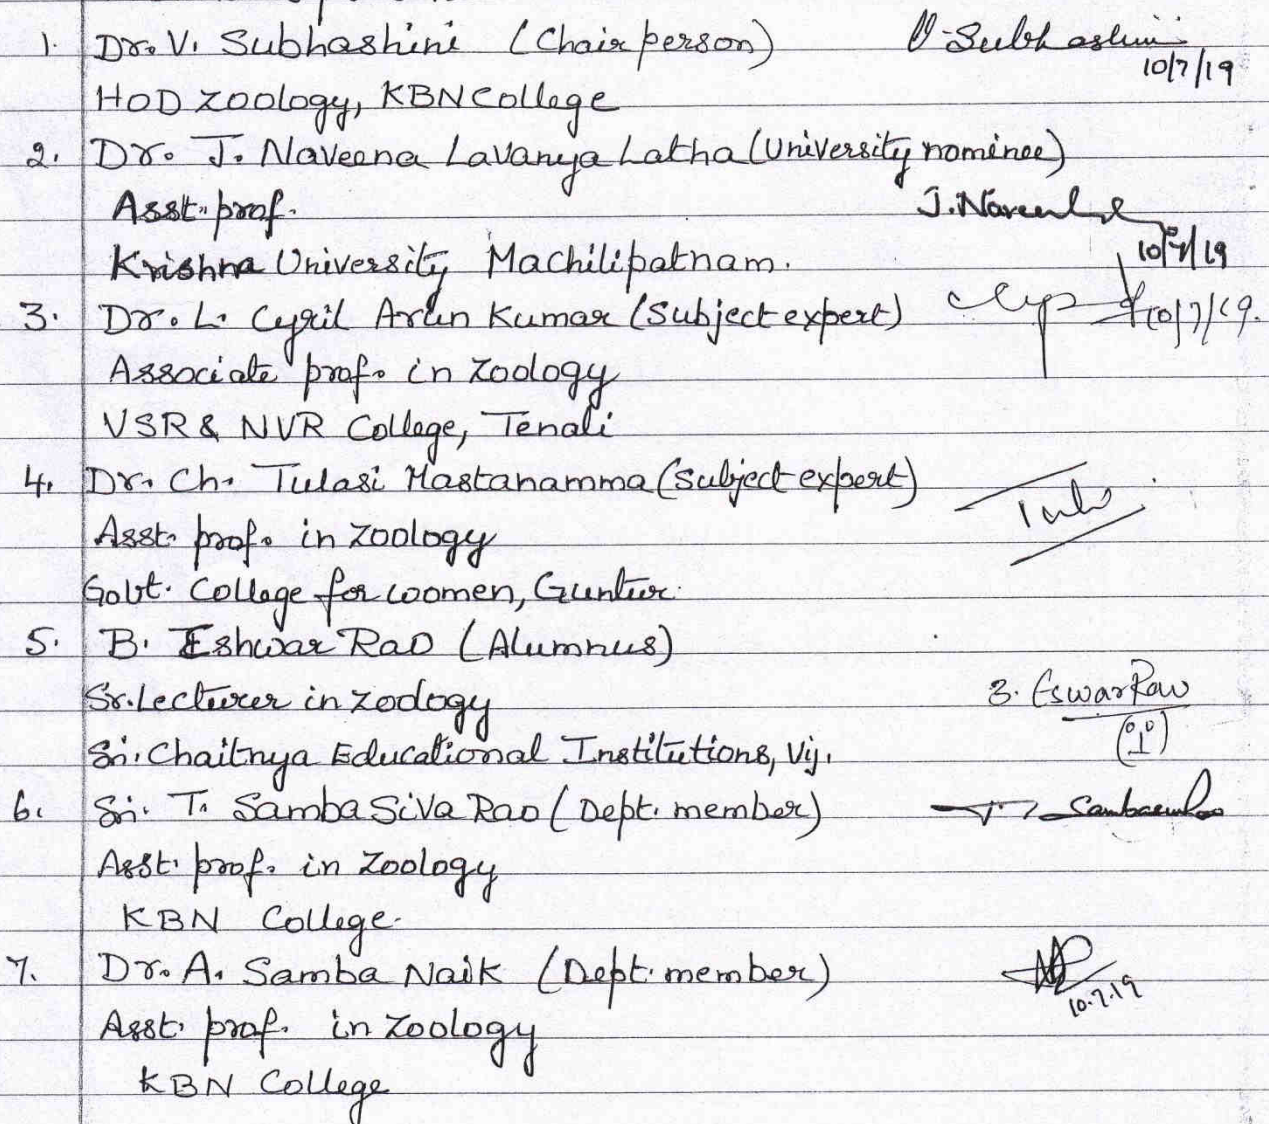 1. Dr. V. Subhashini (Chair person) V. Subhashini
10/7/19
HOD Zoology, KBN College
2. Dr. J. Naveena Lavanya Latha (University nominee)
Asst. prof. J. Naveen
10/7/19
Krishna University, Machilipatnam.
3. Dr. L. Cyril Arun Kumar (Subject expert) 10/7/19.
Associate prof. in Zoology
VSR & NVR College, Tenali
4. Dr. Ch. Tulasi Mastanamma (Subject expert)
Asst. prof. in Zoology
Govt. College for women, Guntur.
5. B. Eshwar Rao (Alumnus)
Sr. Lecturer in Zoology B. Eswar Rao
Sri. Chaitnya Educational Institutions, Vij.
6. Sri. T. Samba Siva Rao (Dept. member) T.
Asst. prof. in Zoology
KBN College.
7. Dr. A. Samba Naik (Dept. member)
10.7.19
Asst. prof. in Zoology
KBN College